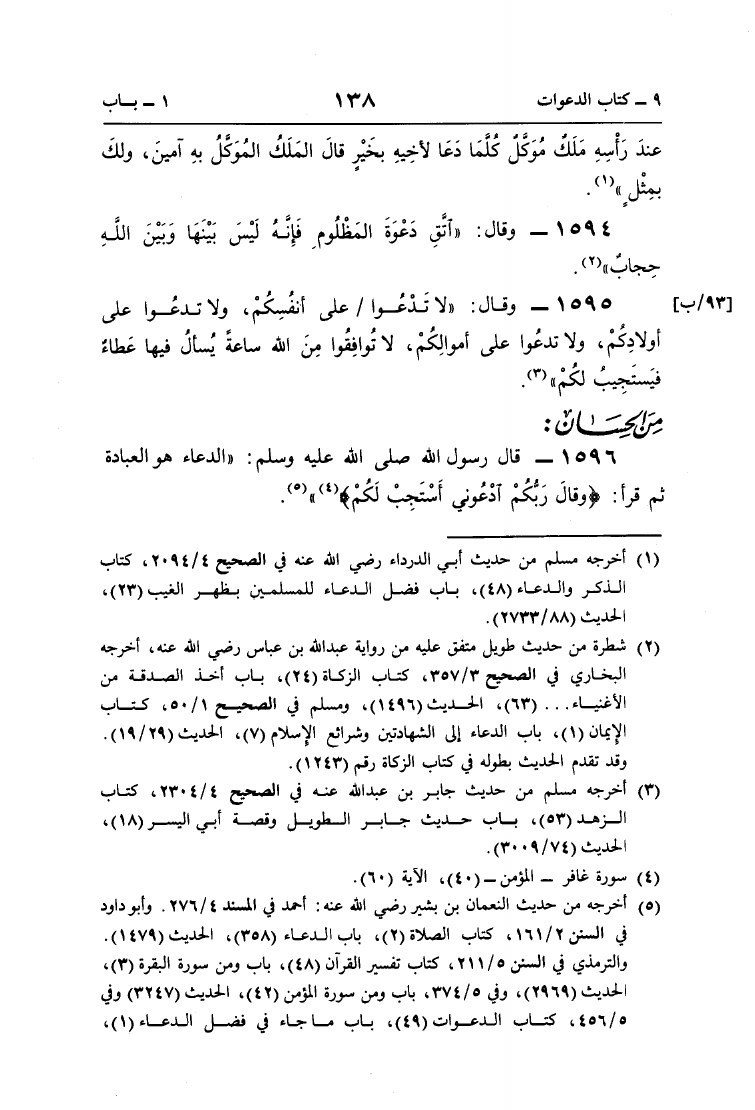 ٩ ـ كتاب الدعوات ١٣٨ ١ ـ بــاب
عندَ رَأْسِهِ مَلَكٌ مُوَكَّلٌ كُلَّمَا دَعَا لأخِيهِ بخَيْرٍ قالَ المَلَكُ المُوَكَّلُ بهِ آمينَ، ولكَ
بمِثْلٍ»(١).
١٥٩٤ ـ وقال: «اتَّقِ دَعْوَةَ المَظْلُومِ فَإِنَّـهُ لَيْسَ بَيْنَهَا وَبَيْنَ اللَّـهِ
حِجابٌ»(٢).
[٩٣/ب] ١٥٩٥ ـ وقـال: «لا تَـدْعُــوا / على أنفُسِكُمْ، ولا تـدعُــوا على
أولادِكُمْ، ولا تدعُوا على أموالِكُمْ، لا تُوافِقُوا مِنَ الله ساعةً يُسألُ فيها عَطاءٌ
فيَستَجِيبُ لكُمْ»(٣).
مِنَ الحِسَـــان:
١٥٩٦ ـ قال رسول الله صلى الله عليه وسلم: «الدعاء هو العبادة
ثم قرأ: ﴿وقالَ رَبُّكُمْ ادْعُوني أَسْتَجِبْ لَكُمْ﴾(٤)»(٥).
(١) أخرجه مسلم من حديث أبـي الدرداء رضي الله عنه في الصحيح ٢٠٩٤/٤، كتاب
الـذكر والـدعـاء (٤٨)، بـاب فضـل الـدعـاء للمسلمـين بـظهـر الغيب (٢٣)،
الحديث (٢٧٣٣/٨٨).
(٢) شطرة من حديث طويل متفق عليه من رواية عبدالله بن عباس رضي الله عنه، أخرجه
البخاري في الصحيح ٣٥٧/٣، كتاب الزكاة (٢٤)، بـاب أخـذ الصـدقـة من
الأغنيـاء... (٦٣)، الحـديث (١٤٩٦)، ومسلم في الصحيـح ٥٠/١، كـتـاب
الإيمان (١)، باب الدعاء إلى الشهادتين وشرائع الإسلام (٧)، الحديث (١٩/٢٩).
وقد تقدم الحديث بطوله في كتاب الزكاة رقم (١٢٤٣).
(٣) أخرجه مسلم من حديث جابر بن عبدالله عنـه في الصحيح ٢٣٠٤/٤، كتـاب
الـزهـد (٥٣)، بـاب حـديث جـابـر الـطويـل وقصـة أبـي اليسـر (١٨)،
الحديث (٣٠٠٩/٧٤).
(٤) سورة غافر ـ المؤمن ـ (٤٠)، الآية (٦٠).
(٥) أخرجه من حديث النعمان بن بشير رضي الله عنه: أحمد في المسند ٢٧٦/٤. وأبو داود
في السنن ١٦١/٢، كتاب الصلاة (٢)، باب الدعاء (٣٥٨)، الحديث (١٤٧٩).
والترمذي في السنن ٢١١/٥، كتاب تفسير القرآن (٤٨)، باب ومن سورة البقرة (٣)،
الحديث (٢٩٦٩)، وفي ٣٧٤/٥، باب ومن سورة المؤمن (٤٢)، الحديث (٣٢٤٧) وفي
٤٥٦/٥، كتـاب الـدعـوات (٤٩)، بـاب مـا جاء في فضـل الـدعـاء (١)،